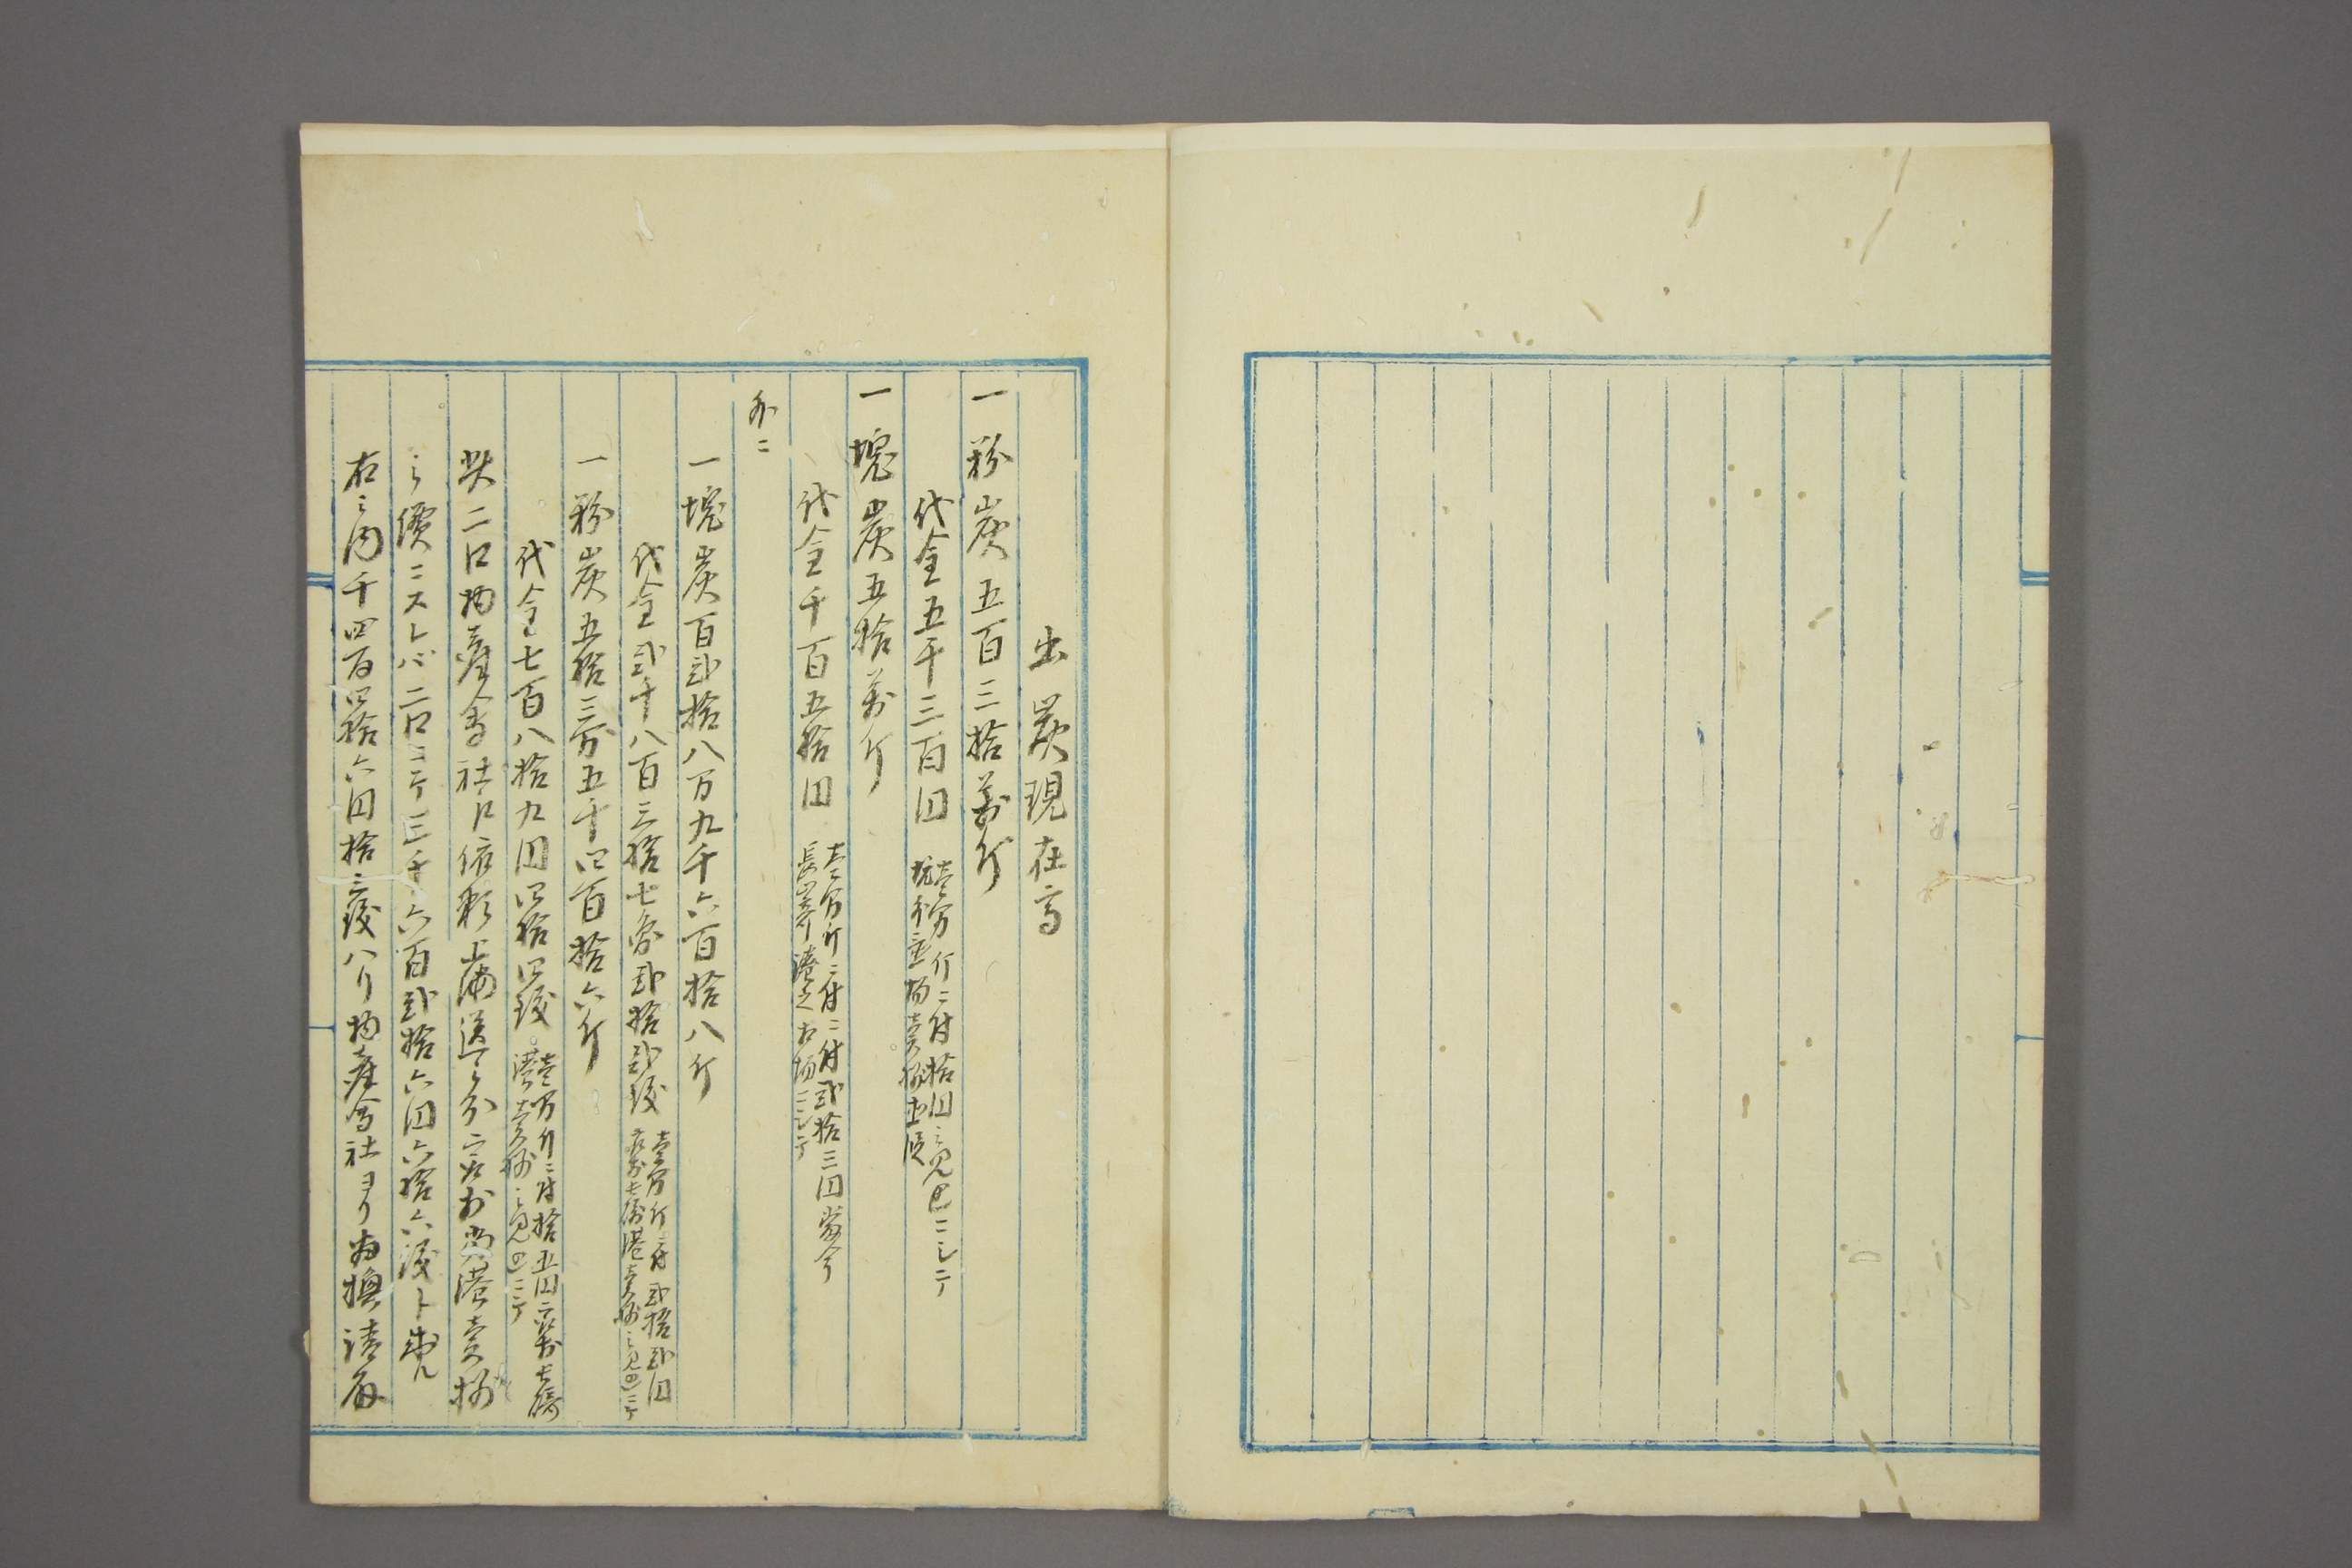 出炭現在高
一粉炭五百三拾萬斤
代金五千三百円
壱万斤ニ付拾円之見込ニシテ
坑所山元場売捌直段
一塊炭五拾萬斤
代金千百五拾円
壱万斤ニ付弐拾三円当今
長崎港之相場ニシテ
外ニ
一塊炭百弐拾八万九千六百拾八斤
代金弐千八百三拾七円弐拾弐銭
壱万斤ニ付弐拾弐円
港売捌之見込ニテ
一粉炭五拾三万五千四百拾六斤
代金七百八拾九円四拾四銭
壱万斤ニ付拾五円
港売捌之見込ニテ
此二口物産会社ヘ依頼上海送之分ニ候得共当港売捌
之價ニスレバ二口ニテ三千六百弐拾六円六拾六銭ト成ル
右之内千四百四拾六円拾三銭ハ物産会社ヨリ為換請取